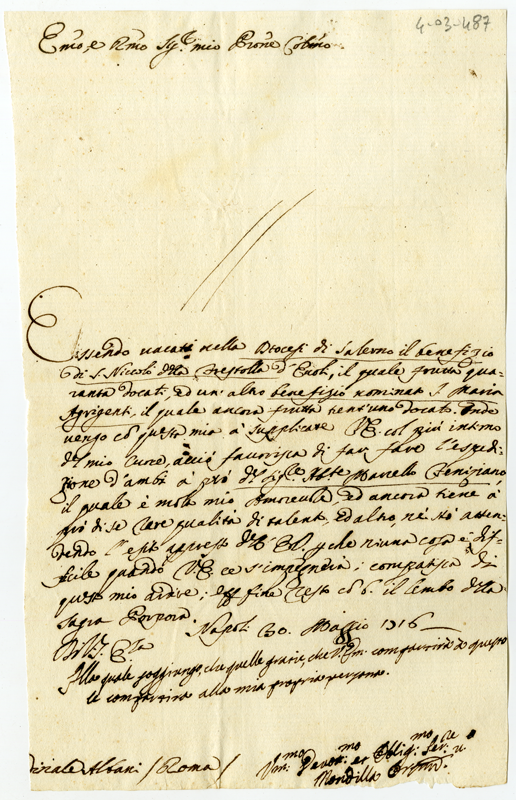 4-03-487
Emo, e Rmo Sig.r mio Prone Colmo
Essendo vacati nella Diocesi di Salerno il benefizio
di S. Niccolò della d'Evoli, il quale frutta qua-
ranta docati, ed un' altro benefizio nominato S. Maria
Agrigenti, il quale ancora frutta trent'uno docati. Onde
vengo cò questa mia à supplicare V.E. col più intimo
del mio cuore, acciò favorisca di far fare l'espedi-
zione d'ambi à prò del Sig.re Ab.te Marcello Veniziano,
il quale è molto mio Amorevole, ed ancora tiene à
prò di se rare qualità di talenti, ed altro, nè stò atten-
dendo l'esito appresso dell' che niuna cosa è dif-
ficile quando V.E. ce s'impegnia; compatisca di
questo mio ardire; e per fine resto cò b. il lembo della
Sagra Porpora. Napoli 30. Maggio 1716
Di V. E.za
Alla quale soggiungo, che quelle grazie, che V.Em. compartirà à questo
le compartirà alla mia propria persona.
Albani / Roma /
Um.mo Devot.mo et Oblig.mo Ser.re
Mondilla Orsini